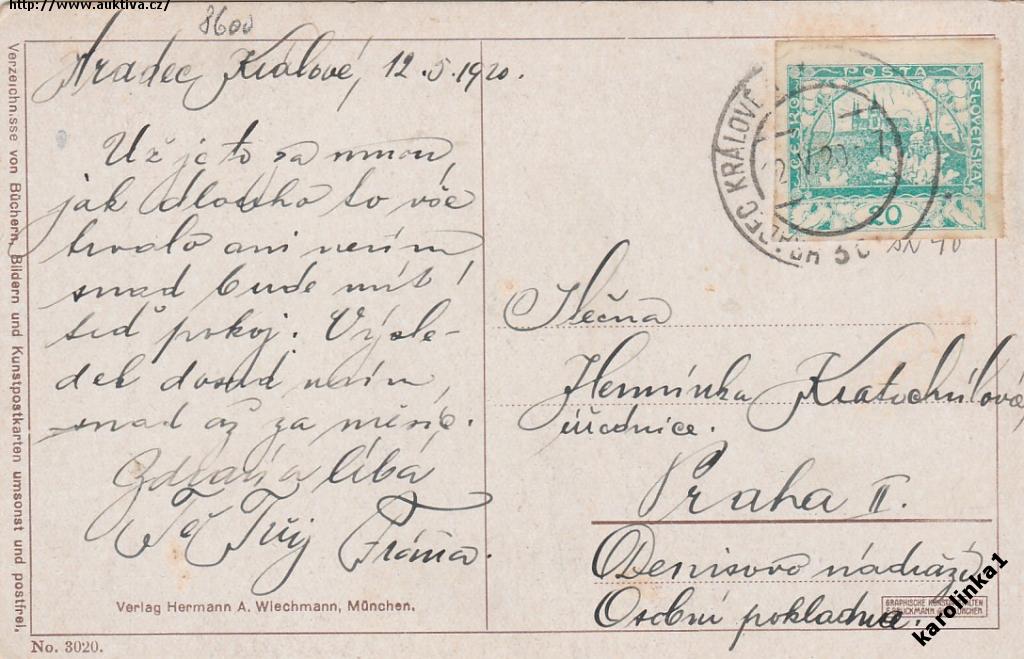 http://www.auktiva.cz/
8600
Hradec Králové, 12.5.1920.
Už je to za mnou,
jak dlouho to vše
trvalo ani nevím
snad bude mít
teď pokoj. Výsle-
dek dosud nevím,
snad až za měsíc.
Zdraví a líbá
Tě Tvůj Fráňa.
Verlag Hermann A. Wiechmann, München.
No. 3020.
Verzeichnisse von Büchern, Bildern und Kunstpostkarten umsonst und postfrei.
POSTA
ČESKO
SLOVENSKÁ
20
HRADEC KRÁLOVÉ
Slečna
Hermínka Kratochvílová,
úřednice.
Praha II.
Denisovo nádraží
Osobní pokladna.
GRAPHISCHE KUNSTANSTALTEN
F. BRUCKMANN MÜNCHEN
karolinka1